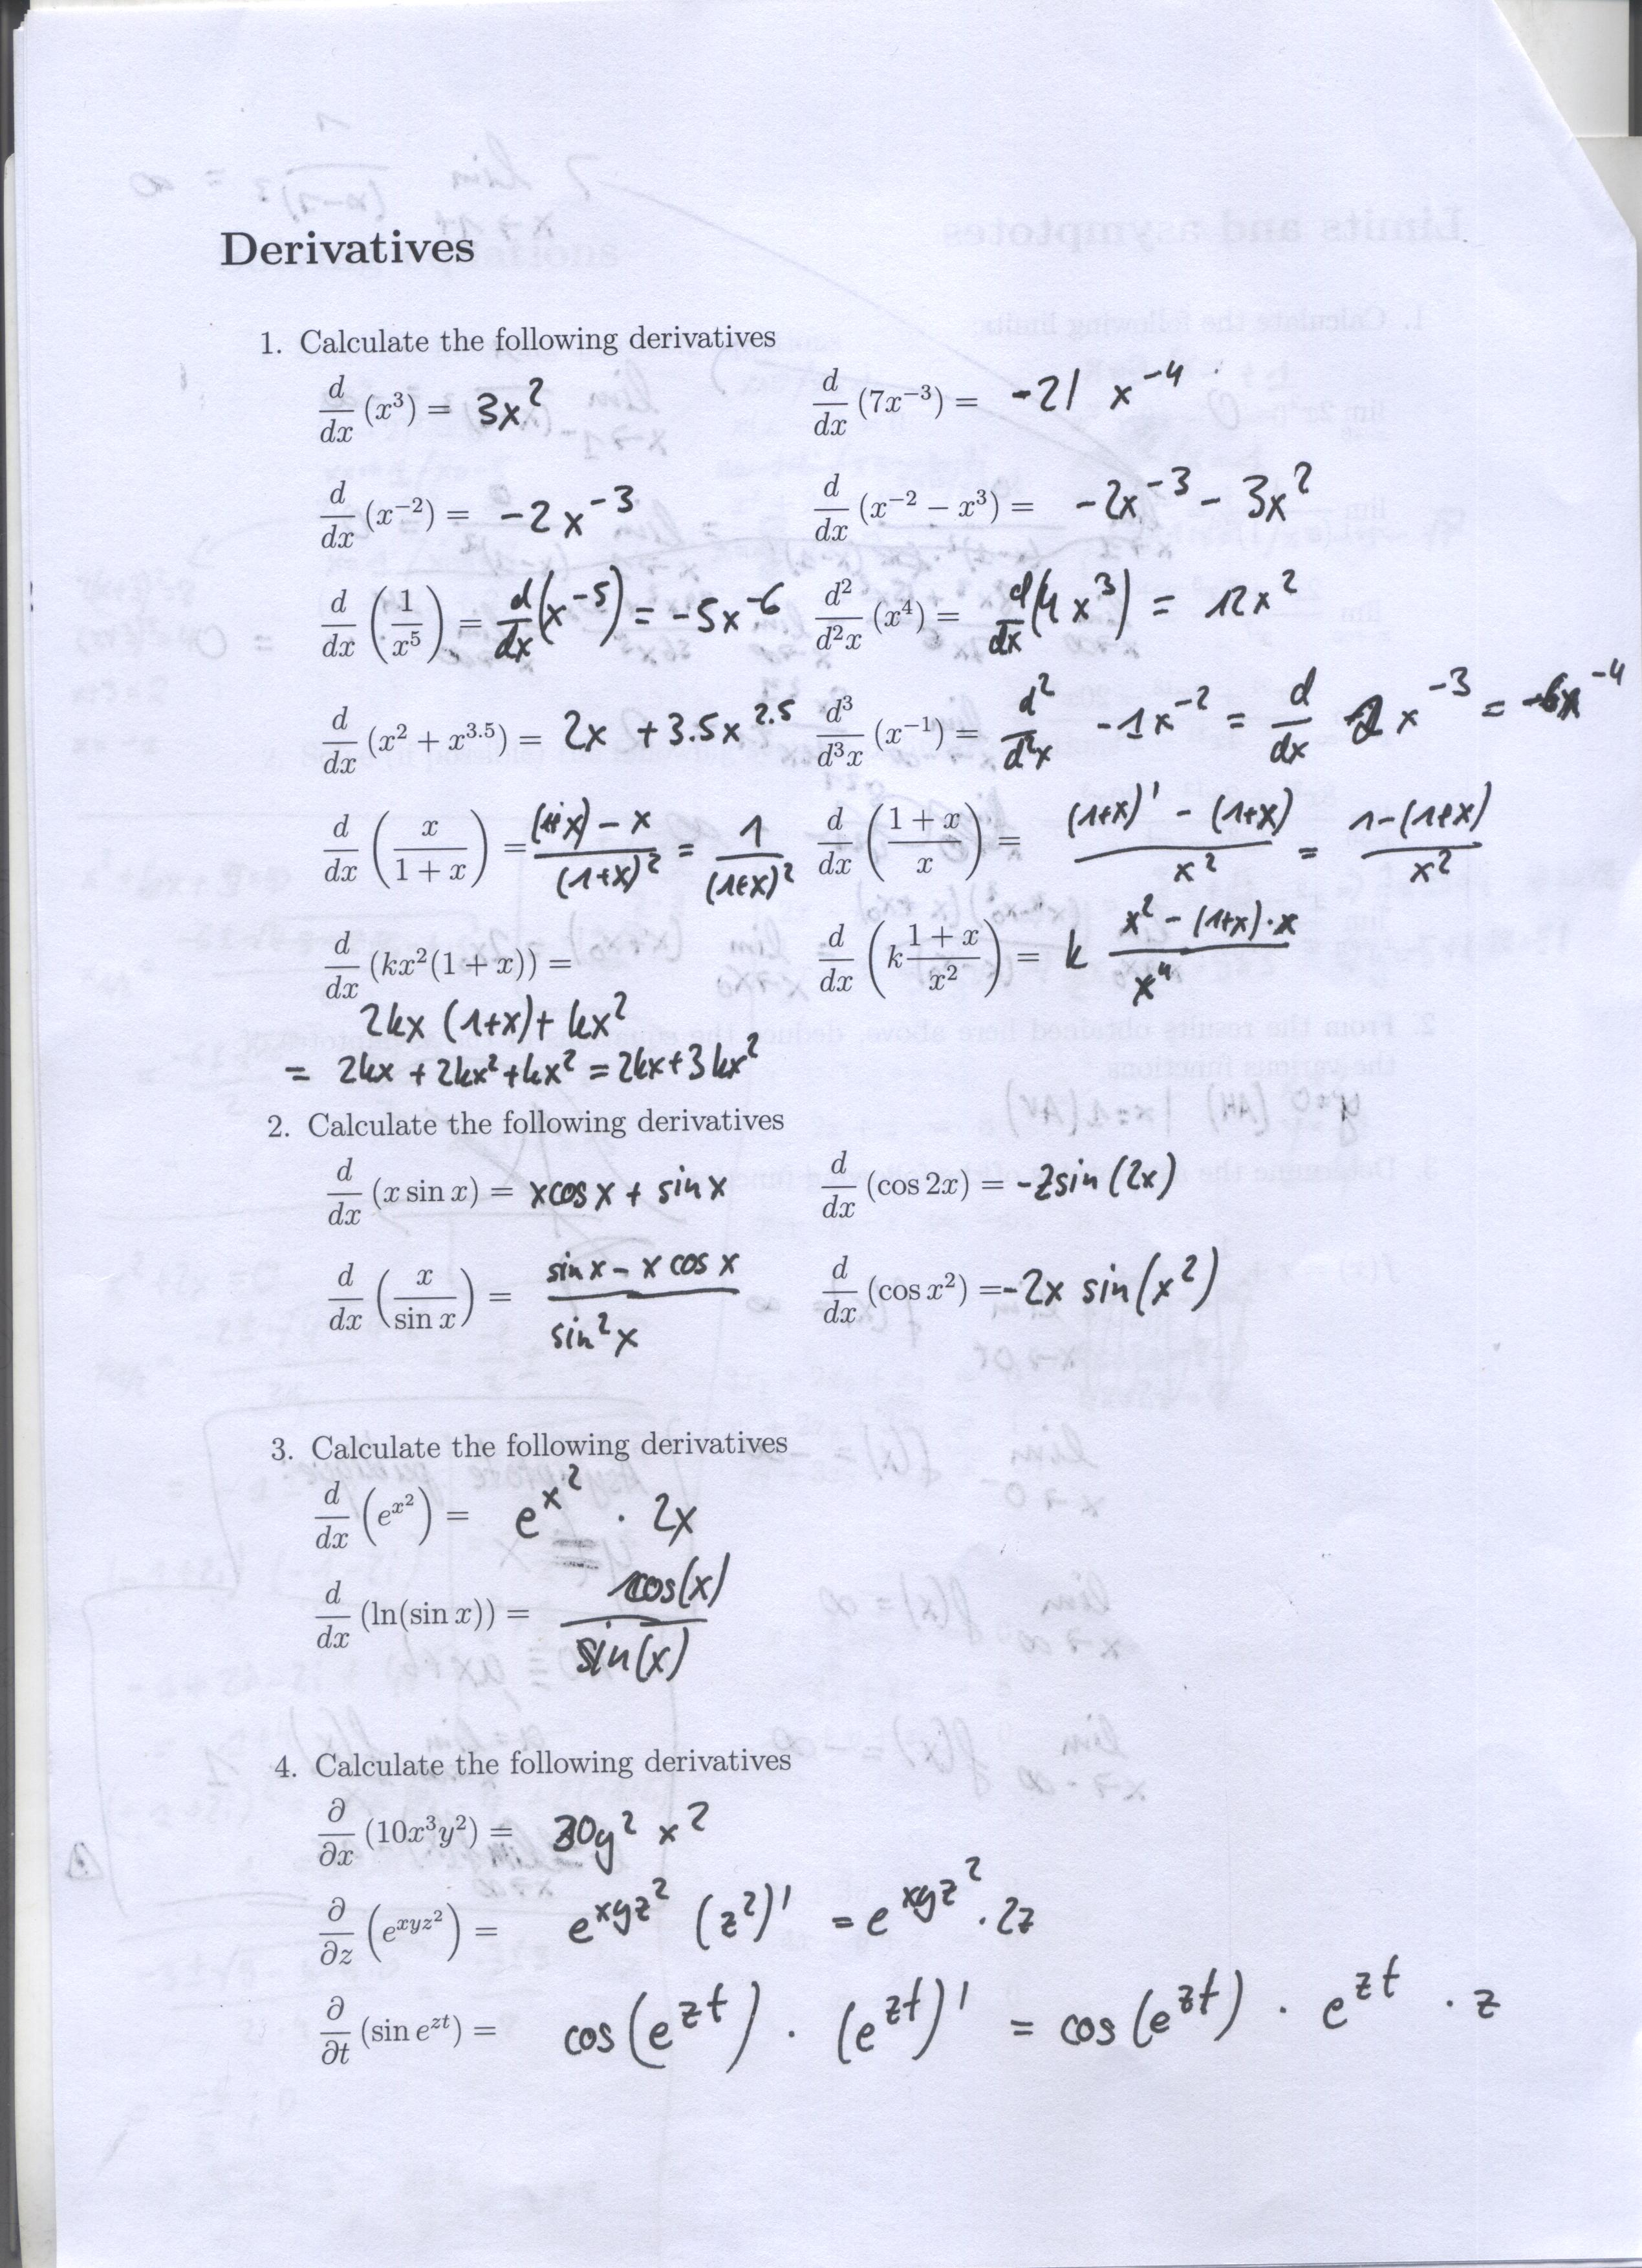 Derivatives
1. Calculate the following derivatives
d/dx (x³) = 3x²
d/dx (7x⁻³) = -21 x⁻⁴
d/dx (x⁻²) = -2x⁻³
d/dx (x⁻² − x³) = -2x⁻³ - 3x²
d/dx (1/x⁵) = d/dx (x⁻⁵) = -5x⁻⁶
d²/d²x (x⁴) = d/dx (4x³) = 12x²
d/dx (x² + x^3.5) = 2x + 3.5x^2.5
d³/d³x (x⁻¹) = d²/d²x -1x⁻² = d/dx 2x⁻³ = -6x⁻⁴
d/dx (x/(1 + x)) = ((1+x) - x)/(1+x)² = 1/(1+x)²
d/dx ((1 + x)/x) = ((1+x)' - (1+x))/x² = (1-(1+x))/x²
d/dx (kx²(1 + x)) =
d/dx (k (1 + x)/x²) = k (x² - (1+x)·x)/x⁴
2kx (1+x) + kx²
= 2kx + 2kx² + kx² = 2kx + 3kx²
2. Calculate the following derivatives
d/dx (x sin x) = xcos x + sin x
d/dx (cos 2x) = -2sin(2x)
d/dx (x/sin x) = (sin x - x cos x)/sin²x
d/dx (cos x²) = -2x sin(x²)
3. Calculate the following derivatives
d/dx (e^x²) = e^x² · 2x
d/dx (ln(sin x)) = cos(x)/sin(x)
4. Calculate the following derivatives
∂/∂x (10x³y²) = 30y² x²
∂/∂z (e^xyz²) = e^xyz² (z²)' = e^xyz² · 2z
∂/∂t (sin e^zt) = cos(e^zt) · (e^zt)' = cos(e^zt) · e^zt · z